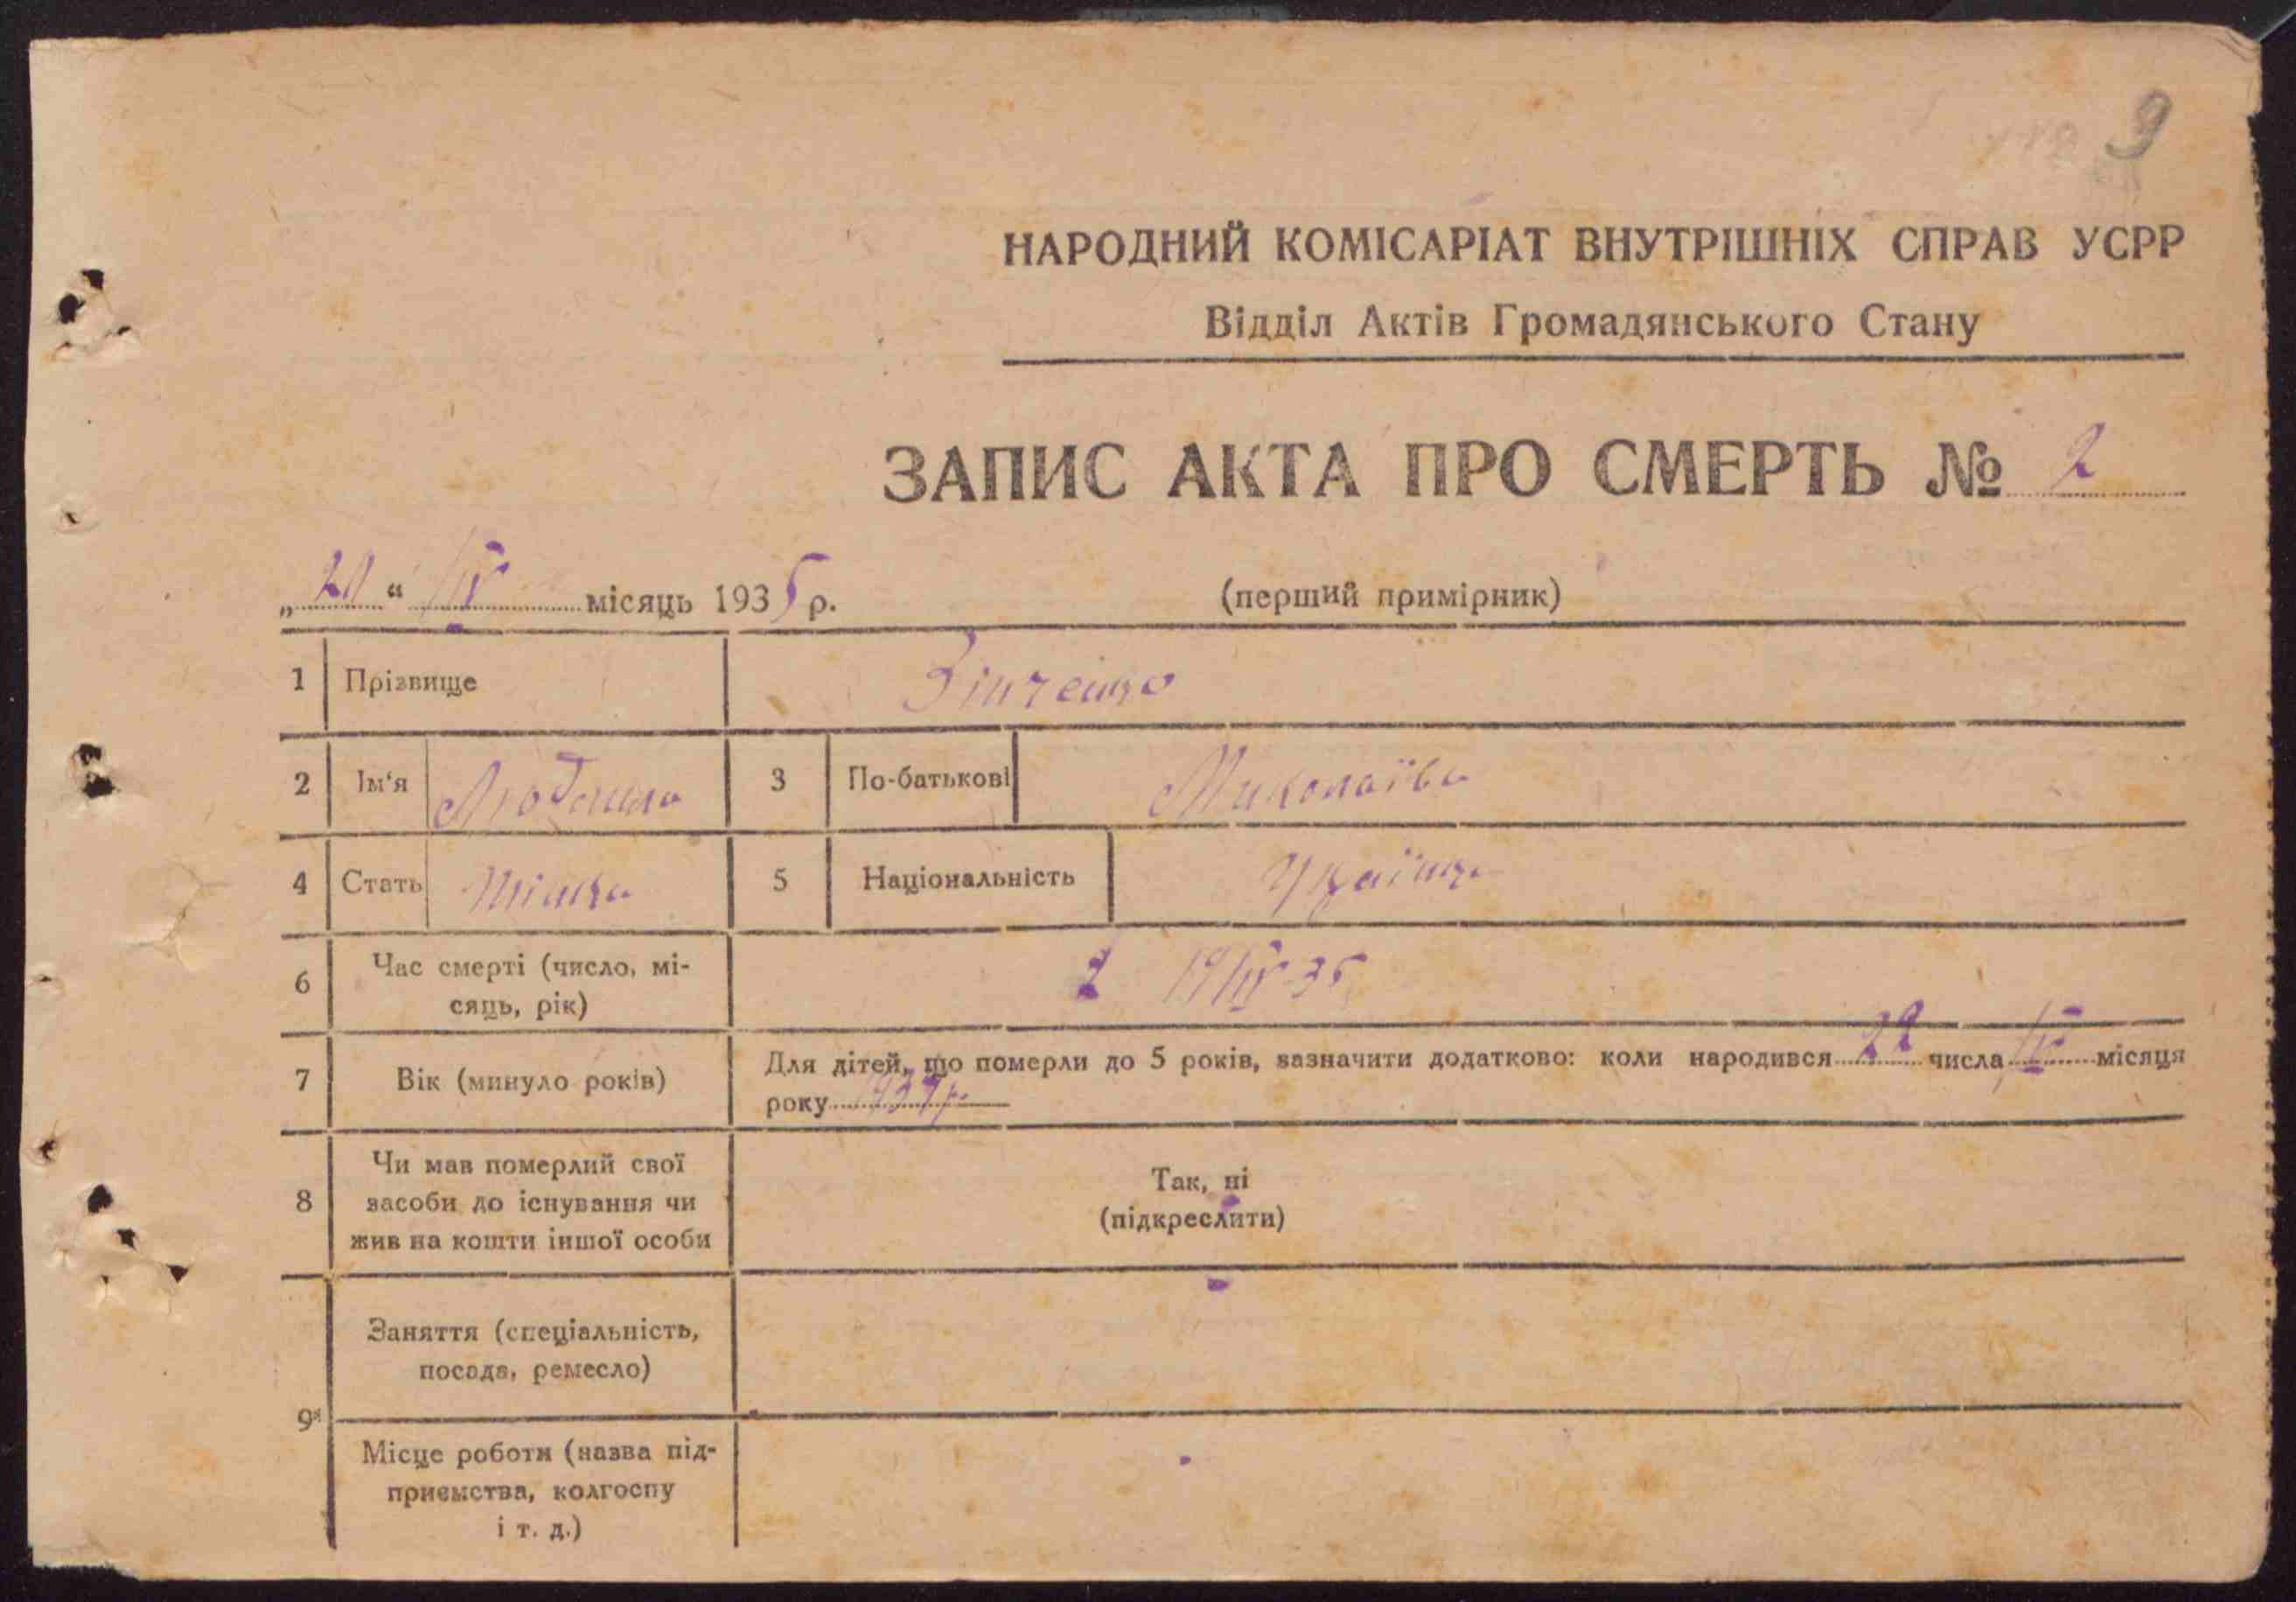 9
НАРОДНИЙ КОМІСАРІАТ ВНУТРІШНІХ СПРАВ УСРР
Відділ Актів Громадянського Стану
ЗАПИС АКТА ПРО СМЕРТЬ № 2
„20“ IV місяць 1935 р. (перший примірник)
1 Прізвище Зінченко
2 Ім‘я Людмила 3 По-батькові Миколаївна
4 Стать жінка 5 Національність Українка
6 Час смерті (число, мі-
сяць, рік) 19/IV-35
7 Вік (минуло років) Для дітей, що померли до 5 років, зазначити додатково: коли народився 22 числа IV місяця
року 1934 р.
8 Чи мав померлий свої
засоби до існування чи
жив на кошти іншої особи
Так, ні
(підкреслити)
9* Заняття (спеціальність,
посада, ремесло)
Місце роботи (назва під-
приємства, колгоспу
і т. д.)